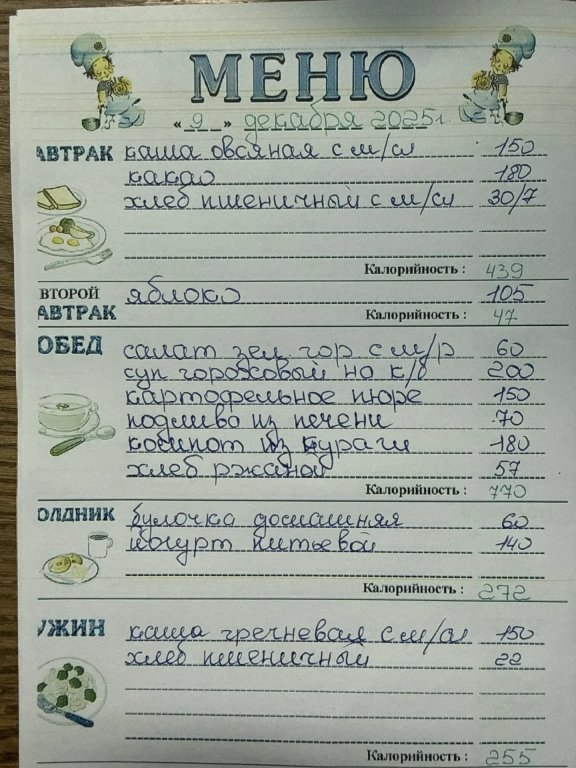 МЕНЮ
« 9 » декабря 2025 г.
АВТРАК каша овсяная с м/сл 150
какао 180
хлеб пшеничный с м/сл 30/7
Калорийность : 439
ВТОРОЙ яблоко 105
АВТРАК Калорийность : 47
ОБЕД салат зел гор с м/р 60
суп гороховый на к/б 200
картофельное пюре 150
подлива из печени 70
компот из кураги 180
хлеб ржаной 57
Калорийность : 770
ОЛДНИК булочка домашняя 60
йогурт питьевой 140
Калорийность : 272
УЖИН каша гречневая с м/сл 150
хлеб пшеничный 22
Калорийность : 255